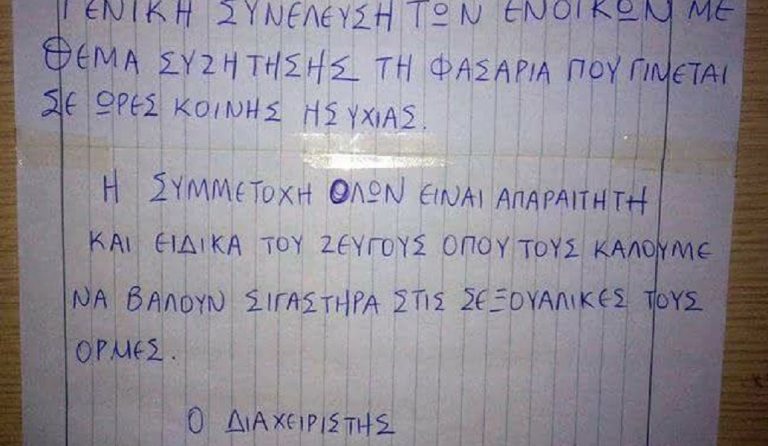 ΓΕΝΙΚΗ ΣΥΝΕΛΕΥΣΗ ΤΩΝ ΕΝΟΙΚΩΝ ΜΕ
ΘΕΜΑ ΣΥΖΗΤΗΣΗΣ ΤΗ ΦΑΣΑΡΙΑ ΠΟΥ ΓΙΝΕΤΑΙ
ΣΕ ΩΡΕΣ ΚΟΙΝΗΣ ΗΣΥΧΙΑΣ.
Η ΣΥΜΜΕΤΟΧΗ ΟΛΩΝ ΕΙΝΑΙ ΑΠΑΡΑΙΤΗΤΗ
ΚΑΙ ΕΙΔΙΚΑ ΤΟΥ ΖΕΥΓΟΥΣ ΟΠΟΥ ΤΟΥΣ ΚΑΛΟΥΜΕ
ΝΑ ΒΑΛΟΥΝ ΣΙΓΑΣΤΗΡΑ ΣΤΙΣ ΣΕΞΟΥΑΛΙΚΕΣ ΤΟΥΣ
ΟΡΜΕΣ.
Ο ΔΙΑΧΕΙΡΙΣΤΗΣ